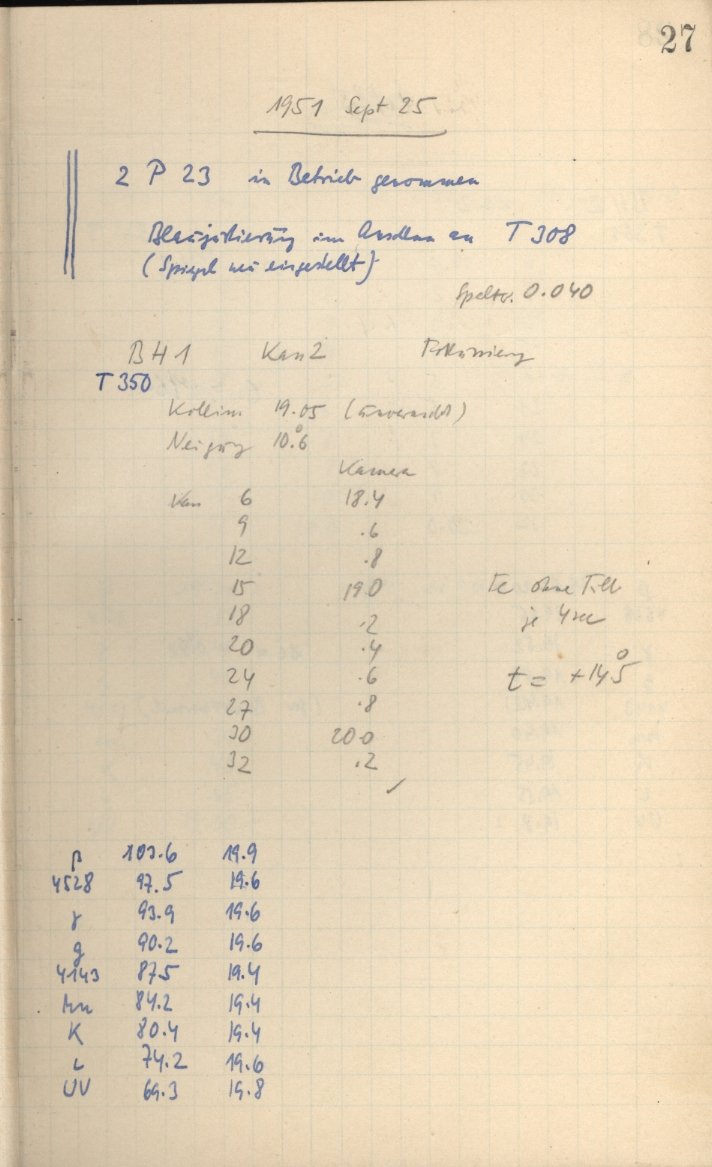 27
1951 Sept 25
2 P 23 in Betrieb genommen
Blaujustierung im Anschluss an T 308
(Spiegel neu eingestellt)
Spaltw. 0.040
BH1 Kas 2 Fokussierg
T 350
Kollim 19.05 (unverändt)
Neigung 10°.6
Kamera
6 18.4
9 .6
12 .8
15 19.0 Fe ohne Filt
18 .2 je 4 sec
20 .4
24 .6 t = +14°.5
27 .8
30 20.0
32 .2
✓
β 103.6 19.9
4528 97.5 19.6
γ 93.9 19.6
g 90.2 19.6
4143 87.5 19.4
84.2 19.4
K 80.4 19.4
L 74.2 19.6
UV 69.3 19.8